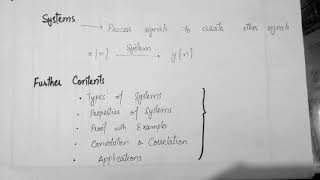 Systems
→ Process signals to create other signals
x[n] System → y[n]
Further Contents
• Types of Systems
• Properties of Systems
• Proof with Examples
• Convolution & Correlation
• Applications